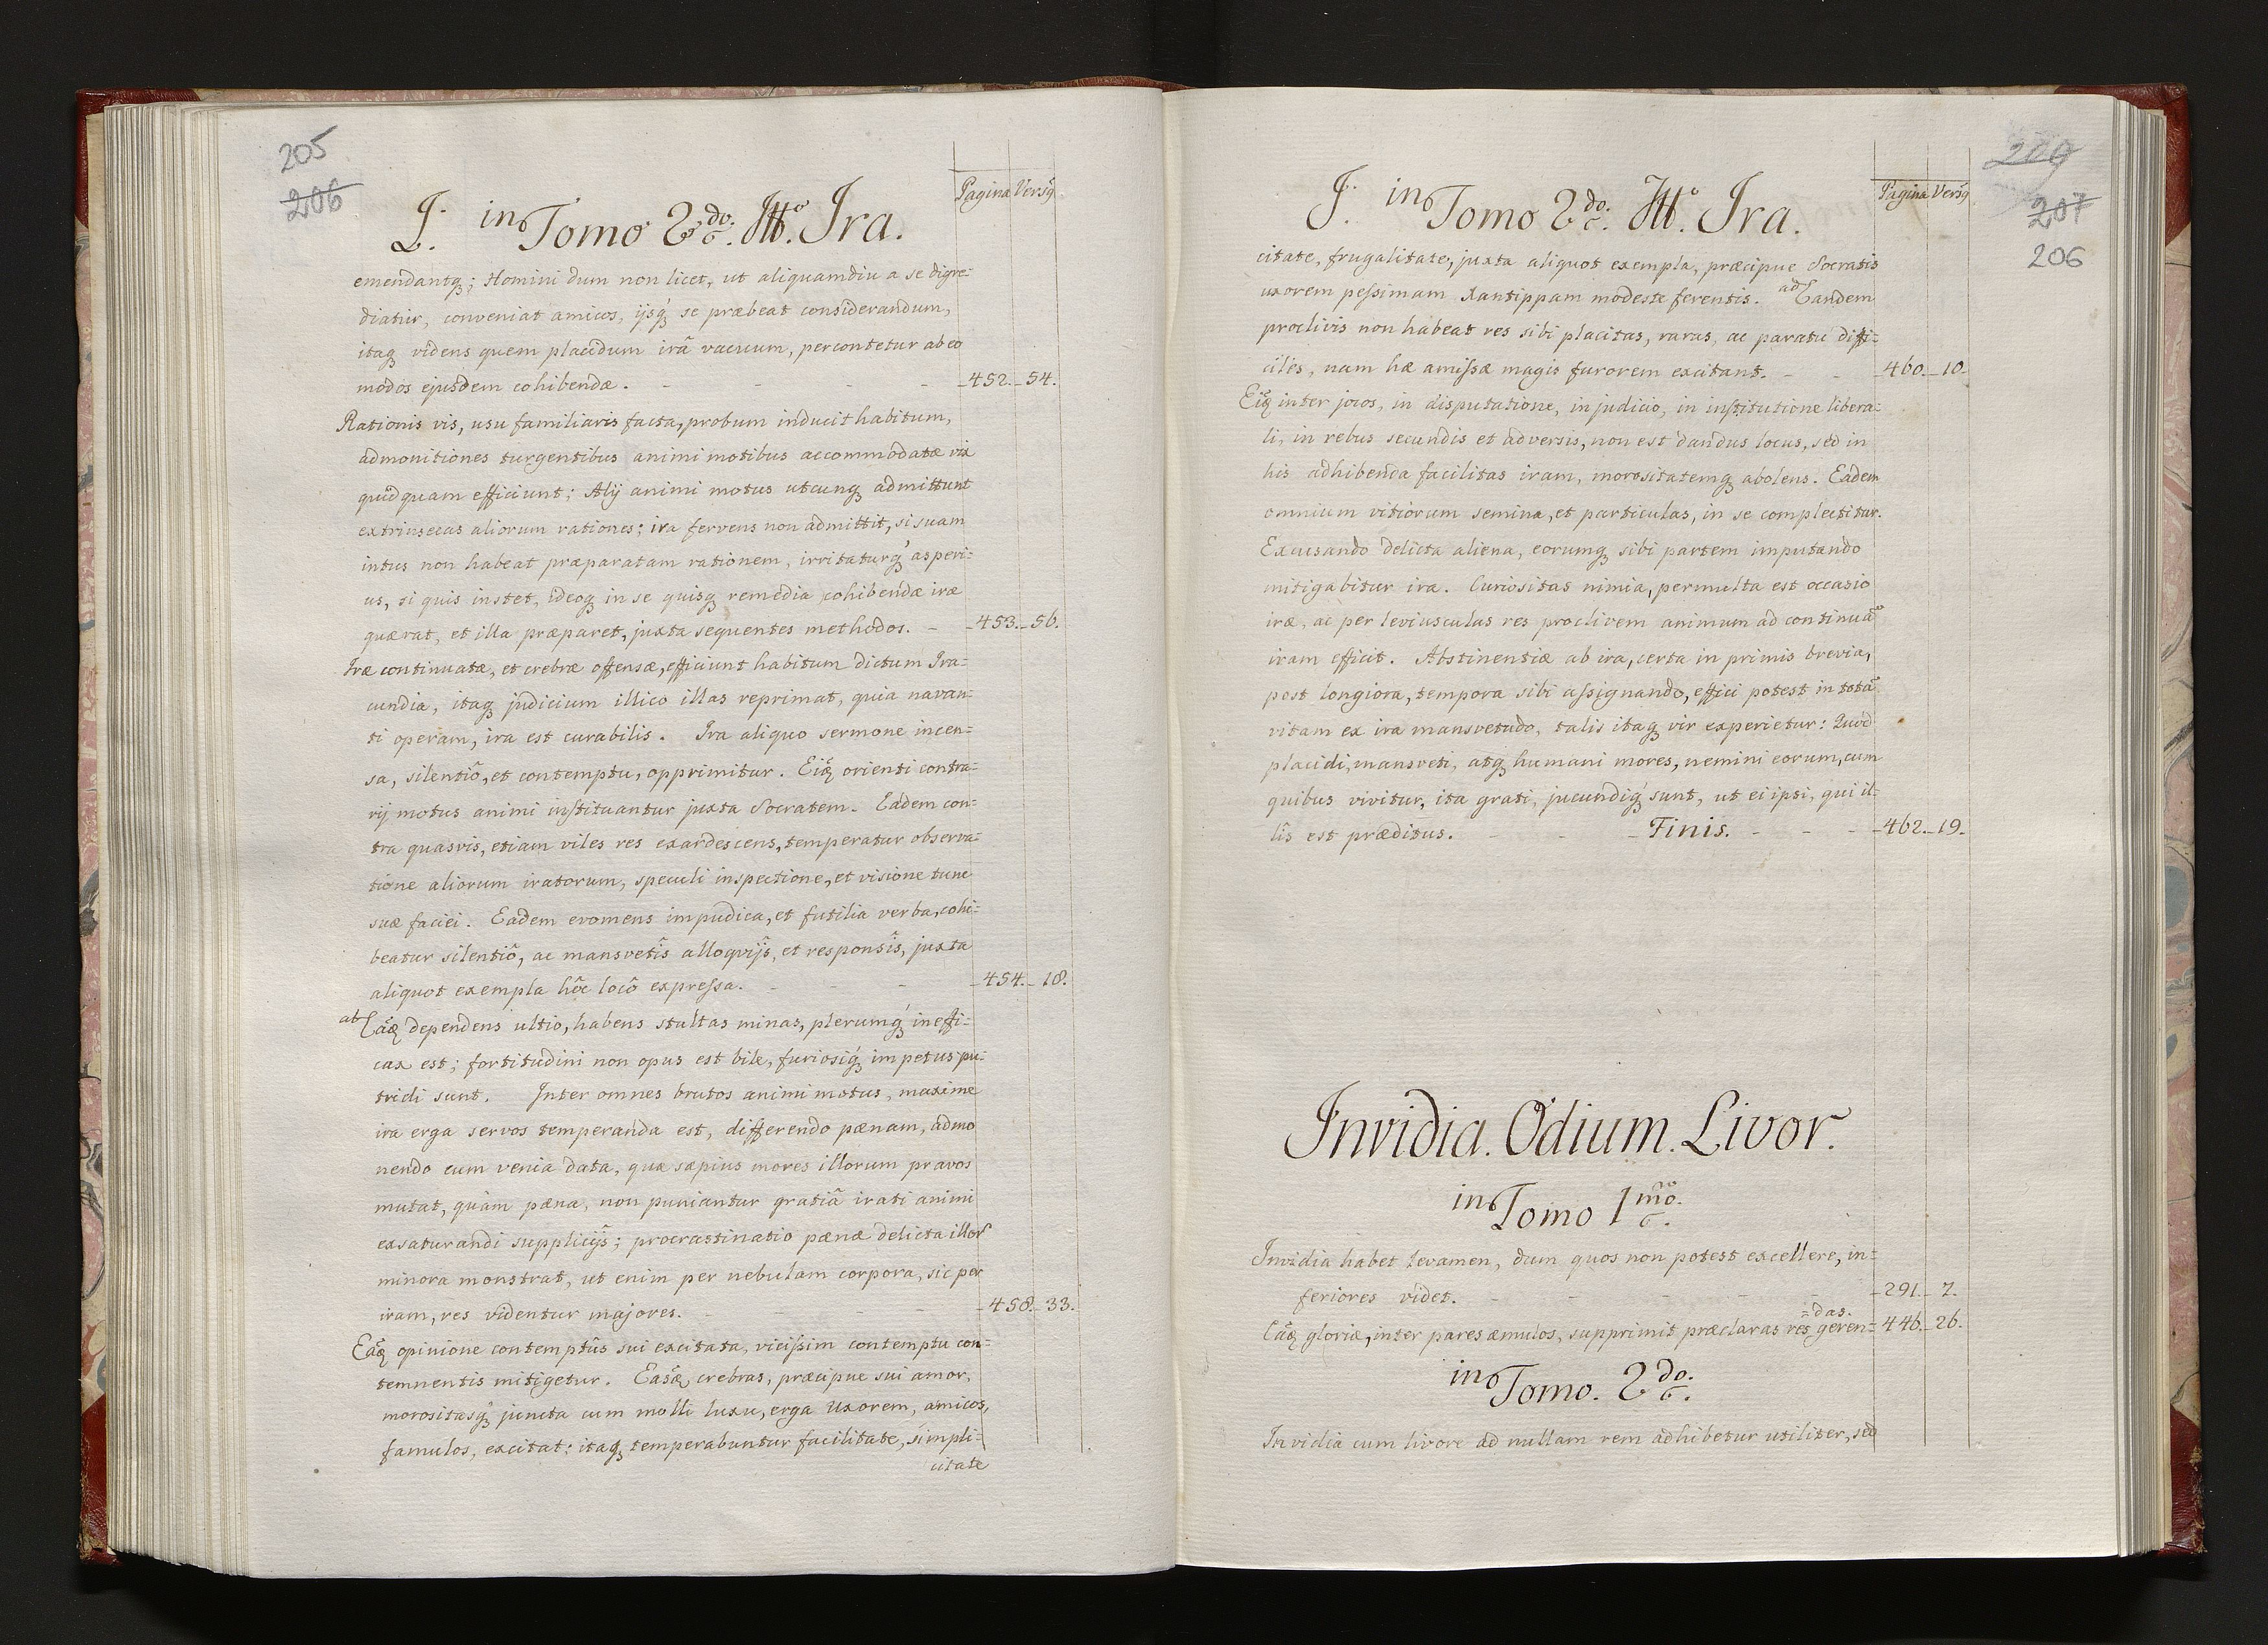 205
206
Pagina Versq̃
I. in Tomo 2do. Ittº. Ira.
emendantq; Homini dum non licet, ut aliquamdiu a se digre-
diatur, conveniat amicos, ijsq́ se præbeat considerandum,
itaq videns quem placidum irâ vacuum, percontetur ab eo
modos ejusdem cohibendæ. - - - - 452. - 54.
Rationis vis, usu familiaris facta, probum inducit habitum,
admonitiones turgentibus animi motibus accommodatæ vix
quidquam efficiunt; Alij animi motus utcunq admittunt
extrinsecas aliorum rationes; ira fervens non admittit, si suam
intus non habeat præparatam rationem, irritaturq́ asperi-
us, si quis instet, ideoq in se quisq remedia cohibendæ iræ
quærat, et illa præparet, juxta sequentes methodos. - 453. - 56.
Iræ continuatæ, et crebræ offensæ, efficiunt habitum dictum Ira-
cundia, itaq judicium illico illas reprimat, quia navan-
ti operam, ira est curabilis. Ira aliquo sermone incen-
sa, silentiô, et contemptu, opprimitur. Eiq̃ orienti contra-
rij motus animi instituantur juxta Socratem. Eadem con-
tra quasvis, etiam viles res exardescens, temperatur observa-
tione aliorum iratorum, speculi inspectione, et visione tunc
suæ faciei. Eadem evomens impudica, et futilia verba, cohi-
beatur silentiô, ac mansvetîs alloqvijs, et responsîs, juxta
aliquot exempla hôc locô expressa. - - - 454. - 18.
ab Eâq̃ dependens ultio, habens stultas minas, plerumq́ ineffi-
cax est; fortitudini non opus est bile, furiosiq́ impetus pu-
tridi sunt. Inter omnes brutos animi motus, maxime
ira erga servos temperanda est, differendo pænam, admo
nendo cum venia data, quæ sæpius mores illorum pravos
mutat, quàm pæna, non puniantur gratiâ irati animi
exsaturandi supplicijs; procrastinatio pænæ delicta illor
minora monstrat, ut enim per nebulam corpora, sic per
iram, res videntur majores. - - - - 458. - 33.
Eâq̃ opinione contemptûs sui excitata, vicissim contemptu con-
temnentis mitigetur. Easq̃ crebras, præcipue sui amor,
morositasq́ juncta cum molli luxu, erga Uxorem, amicos,
famulos, excitat: itaq temperabuntur facilitate, simpli-
citate
209
207
206
Pagina Versq̃
I. in Tomo 2do. Ittº. Ira.
citate, frugalitate, juxta aliquot exempla, præcipue Socratis
uxorem pessimam Xantippam modeste ferentis. ad Eandem
proclivis non habeat res sibi placitas, raras, ac paratu diffi-
ciles, nam hæ amissæ magis furorem excitant. - - 460. - 10.
Eiq̃ inter jocos, in disputatione, in judicio, in institutione libera-
li, in rebus secundis et adversis, non est dandus locus, sed in
his adhibenda facilitas iram, morositatemq abolens. Eadem
omnium vitiorum semina, et particulas, in se complectitur.
Excusando delicta aliena, eorumq sibi partem imputando
mitigabitur ira. Curiositas nimia, permulta est occasio
iræ, ac per leviusculas res proclivem animum ad continuã
iram efficit. Abstinentiæ ab ira, certa in primis brevia,
post longiora, tempora sibi assignando, effici potest in totã
vitam ex ira mansvetudo, talis itaq vir experietur: Quòd
placidi, mansveti, atq humani mores, nemini eorum, cum
quibus vivitur, ita grati, jucundiq́ sunt, ut ei ipsi, qui il-
lîs est præditus. - - - Finis. - - - 462. - 19.
Invidia. Odium. Livor.
in Tomo 1mo.
Invidia habet levamen, dum quos non potest excellere, in-
feriores videt. - - - - - 291. - 7.
Eâq̃ gloriæ, inter pares æmulos, supprimit præclaras res geren- =das. 446. - 26.
in Tomo. 2do.
Invidia cum livore ad nullam rem adhibetur utiliter, sed